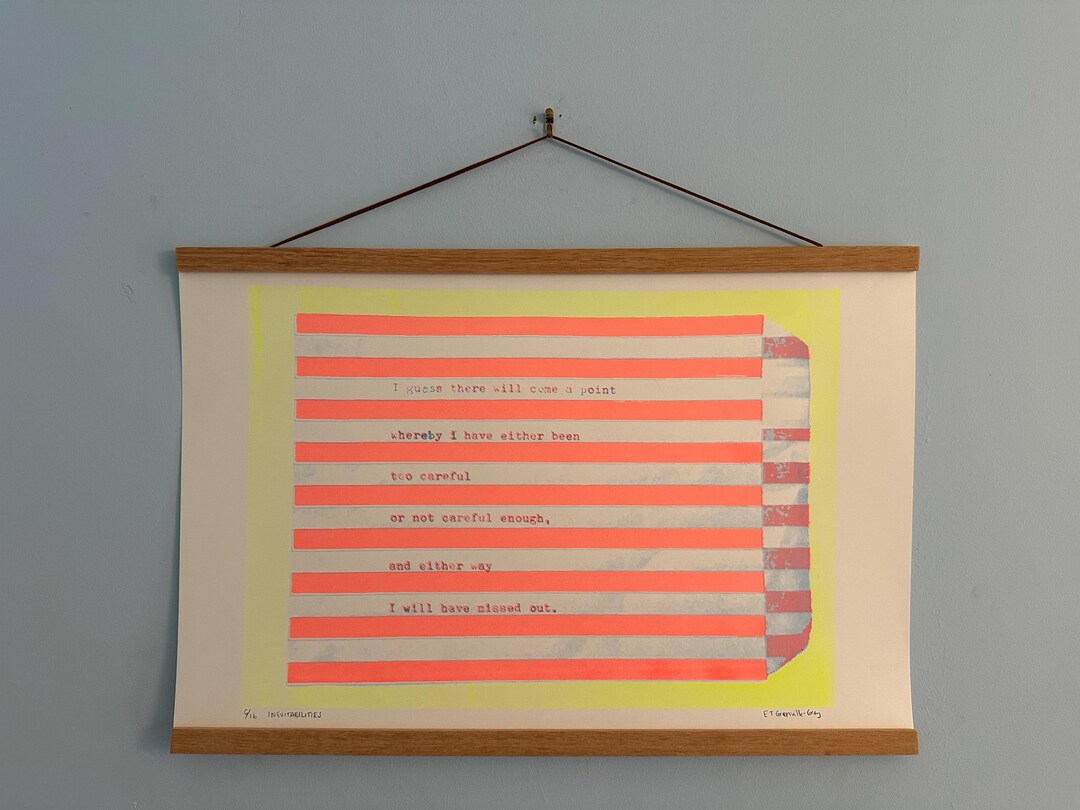 I guess there will come a point
whereby I have either been
too careful
or not careful enough,
and either way
I will have missed out.
/16 INEVITABILITIES
E T